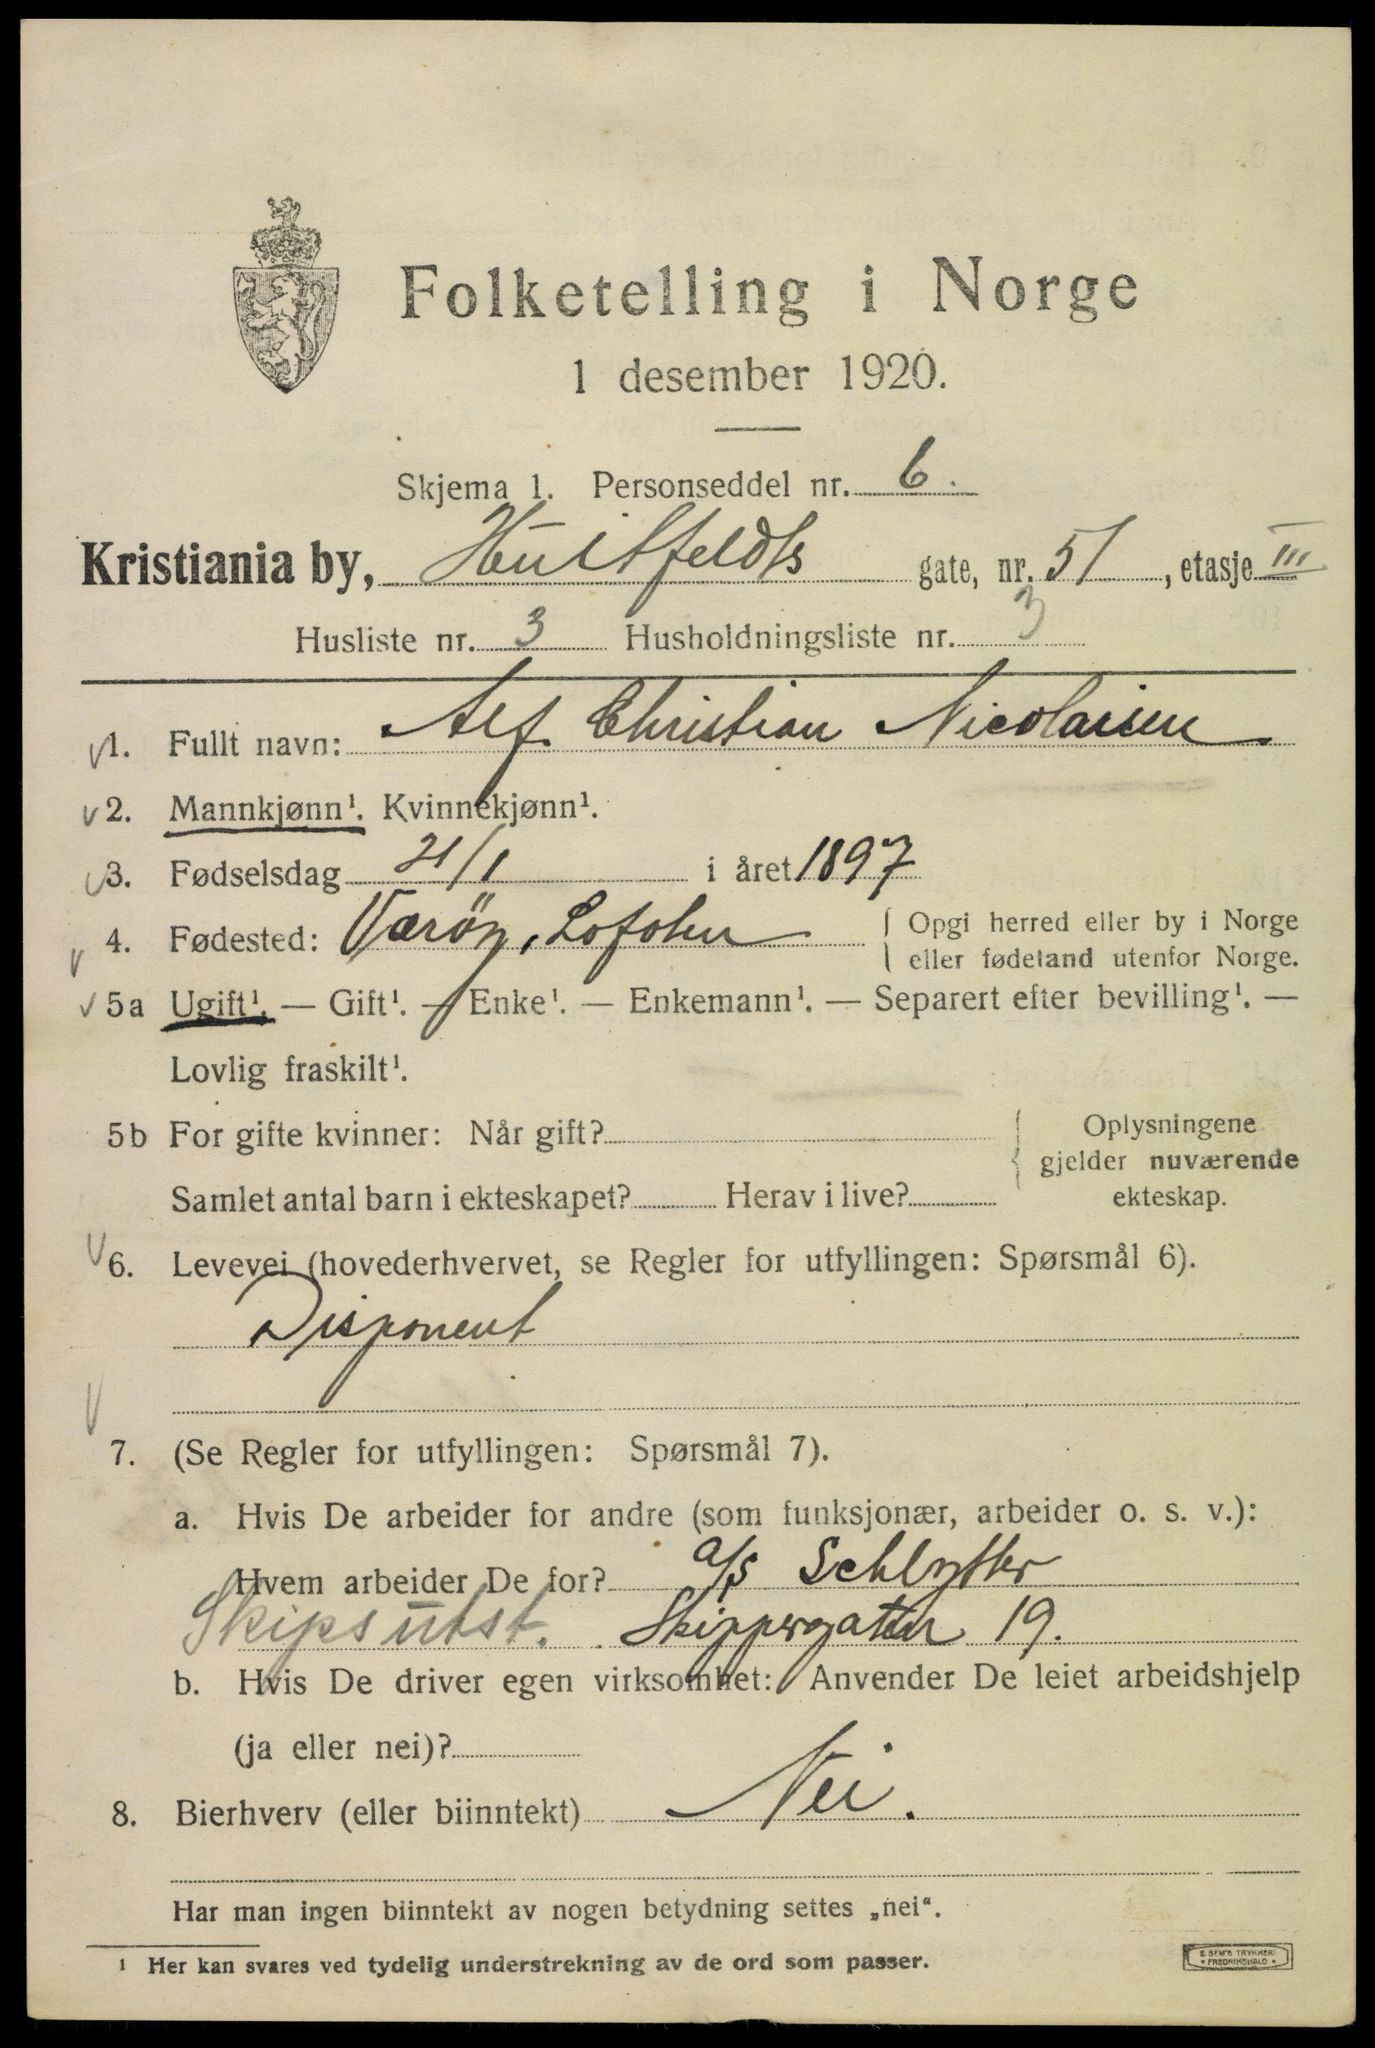 Folketelling i Norge
1 desember 1920.
Skjema 1. Personseddel nr. 6.
Kristiania by, Huitfeldts gate, nr. 51, etasje III
Husliste nr. 3 Husholdningsliste nr. 3
1. Fullt navn: Alf Christian Nicolaisen.
2. Mannkjønn¹. Kvinnekjønn¹.
3. Fødselsdag 21/1 i året 1897
4. Fødested: Værøy, Lofoten { Opgi herred eller by i Norge
eller fødeland utenfor Norge.
5a Ugift¹. — Gift¹. — Enke¹. — Enkemann¹. — Separert efter bevilling¹. —
Lovlig fraskilt¹.
5b For gifte kvinner: Når gift? { Oplysningene
gjelder nuværende
Samlet antal barn i ekteskapet? Herav i live? ekteskap.
6. Levevei (hovederhvervet, se Regler for utfyllingen: Spørsmål 6).
Disponent
7. (Se Regler for utfyllingen: Spørsmål 7).
a. Hvis De arbeider for andre (som funksjonær, arbeider o. s. v.):
Hvem arbeider De for? a/s Schlytter
Skipsutst. Skippergaten 19.
b. Hvis De driver egen virksomhet: Anvender De leiet arbeidshjelp
(ja eller nei)?
8. Bierhverv (eller biinntekt) Nei.
Har man ingen biinntekt av nogen betydning settes „nei“.
¹ Her kan svares ved tydelig understrekning av de ord som passer.
E SEM'S TRYKKERI
• FREDRIKSHALD •